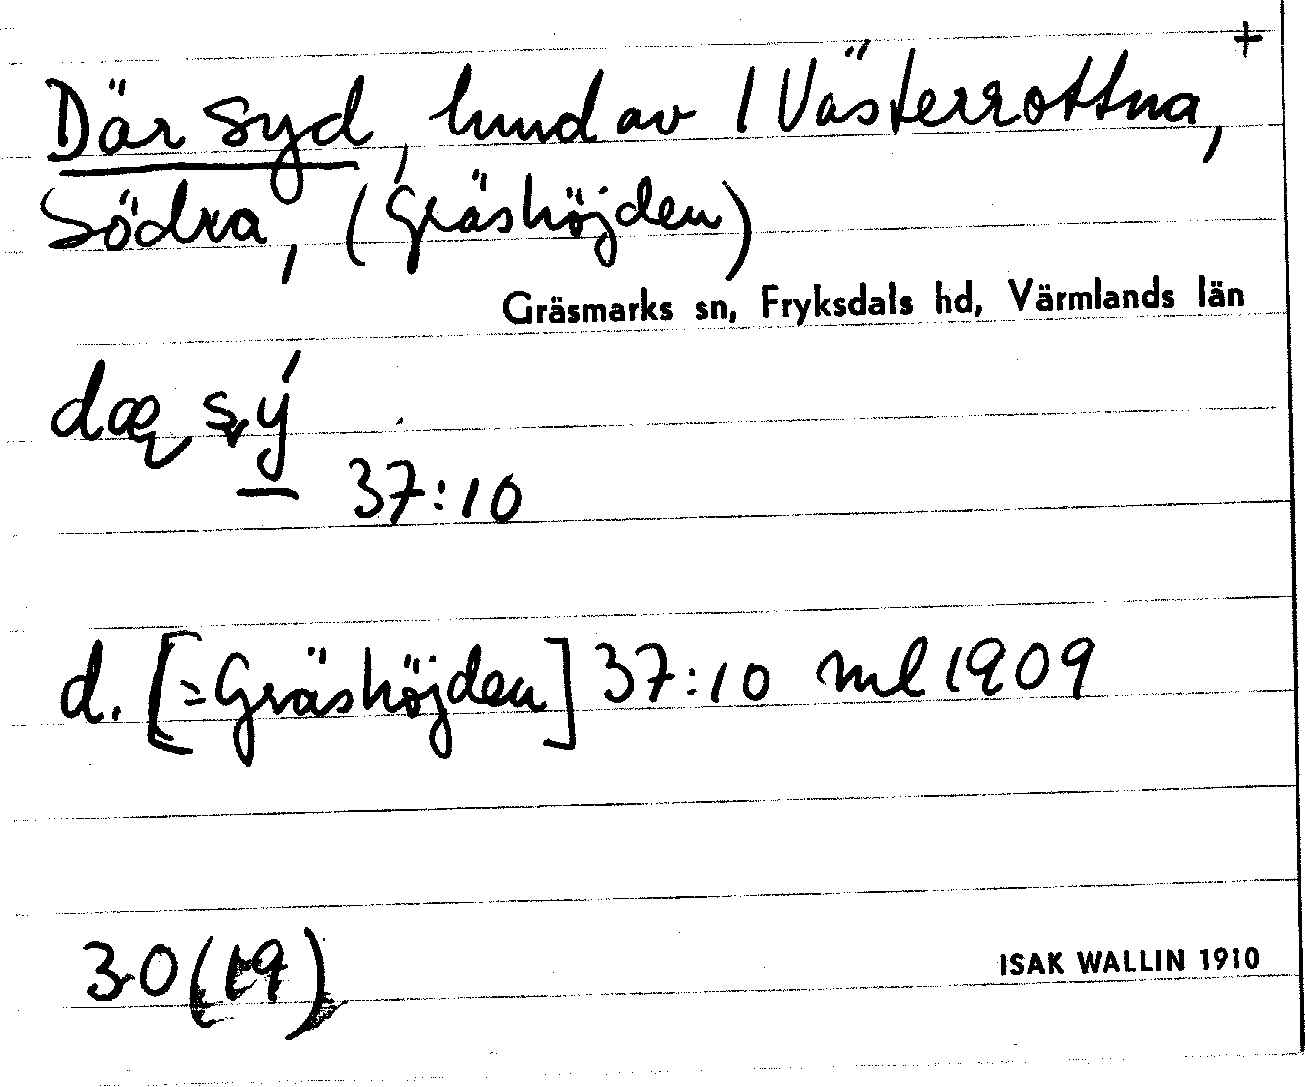 +
Där syd, hmd av 1 Västerrottna,
Södra, (Gräshöjden)
Gräsmarks sn, Fryksdals hd, Värmlands län
dæ sý
37:10
d. [=Gräshöjden] 37:10 ml 1909
30 (19)
ISAK WALLIN 1910